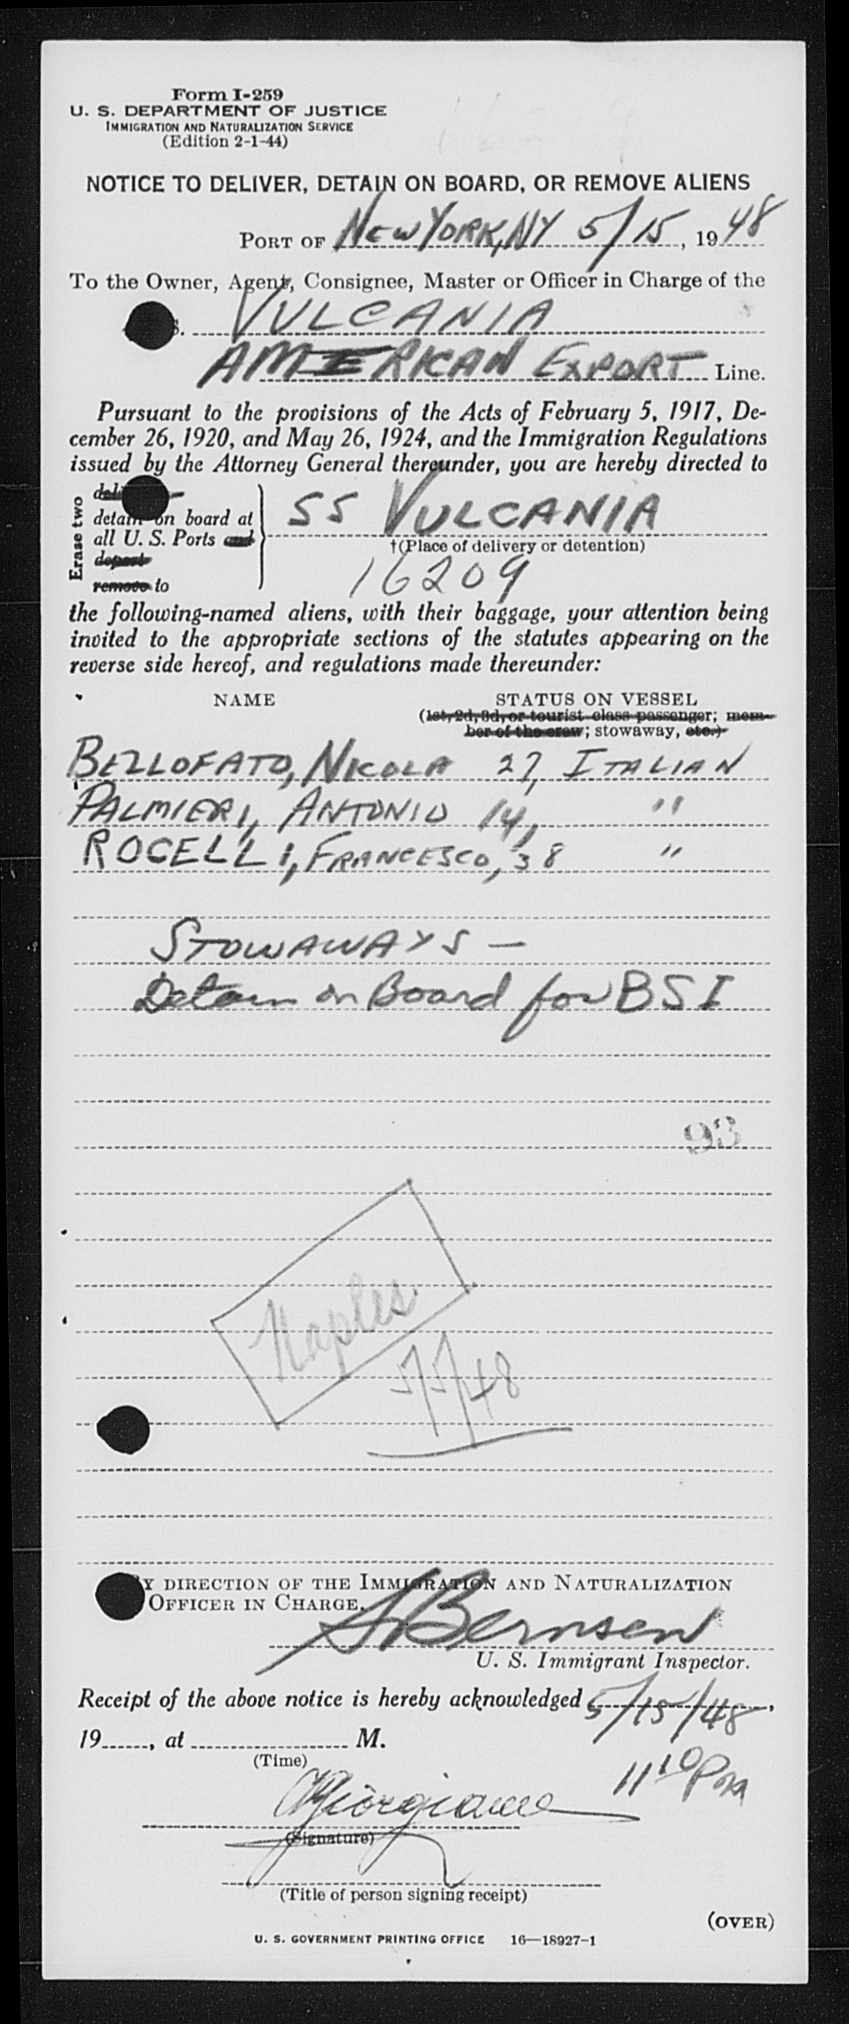 Form I-259
U. S. DEPARTMENT OF JUSTICE
IMMIGRATION AND NATURALIZATION SERVICE
(Edition 2-1-44)
NOTICE TO DELIVER, DETAIN ON BOARD, OR REMOVE ALIENS
PORT OF NEW YORK, NY 5/15, 1948
To the Owner, Agent, Consignee, Master or Officer in Charge of the
S. VULCANIA
AMERICAN EXPORT Line.
Pursuant to the provisions of the Acts of February 5, 1917, De-
cember 26, 1920, and May 26, 1924, and the Immigration Regulations
issued by the Attorney General thereunder, you are hereby directed to
Erase two
detain on board at
all U. S. Ports and
depart
remove to
SS VULCANIA
†(Place of delivery or detention)
16209
the following-named aliens, with their baggage, your attention being
invited to the appropriate sections of the statutes appearing on the
reverse side hereof, and regulations made thereunder:
NAME STATUS ON VESSEL
(1st, 2d, 3d, or tourist class passenger; mem-
ber of the crew; stowaway, etc.)
BEZLOFATO, NICOLA 27, ITALIAN
PALMIERI, ANTONIO 14, "
ROCELLI, FRANCESCO, 38 "
STOWAWAYS –
Detain on Board for BSI
93
Naples
5/5/48
BY DIRECTION OF THE IMMIGRATION AND NATURALIZATION
OFFICER IN CHARGE.
Bernsen
U. S. Immigrant Inspector.
Receipt of the above notice is hereby acknowledged 5/15/48,
19......, at ........................ M.
(Time)
11 10 PM
(Signature)
(Title of person signing receipt)
(OVER)
U. S. GOVERNMENT PRINTING OFFICE 16—18927-1